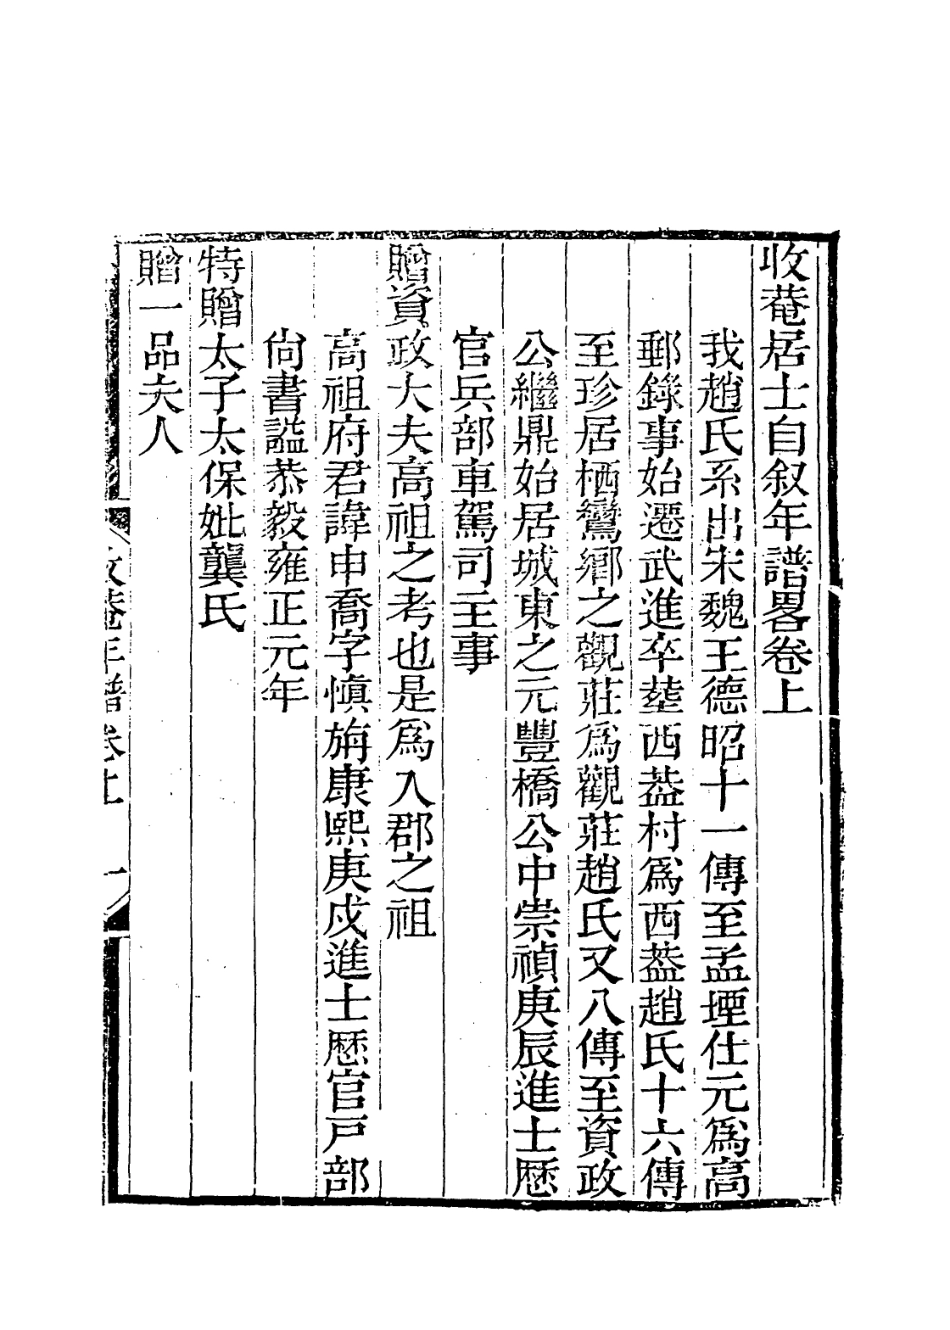 收菴居士自叙年譜畧卷上
我趙氏系出宋魏王德昭十一傳至孟堙仕元爲高
郵錄事始遷武進卒塟西葢村爲西葢趙氏十六傳
至珍居栖鸞鄉之觀莊爲觀莊趙氏又八傳至資政
公繼鼎始居城東之元豐橋公中崇禎庚辰進士歷
官兵部車駕司主事
贈資政大夫高祖之考也是爲入郡之祖
高祖府君諱申喬字愼旃康熙庚戌進士歷官戸部
尙書諡恭毅雍正元年
特贈太子太保妣龔氏
贈一品夫人
收菴年譜 卷上 一